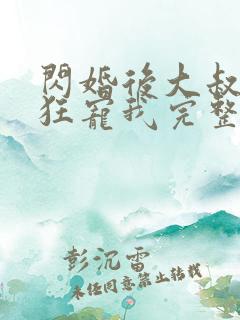 閃婚後大叔
狂寵我完整
彭沉雷
未經同意禁止轉載